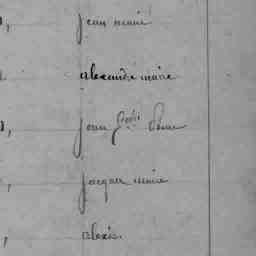 jean marie
alexandre marie
jean
jacques marie
alexis